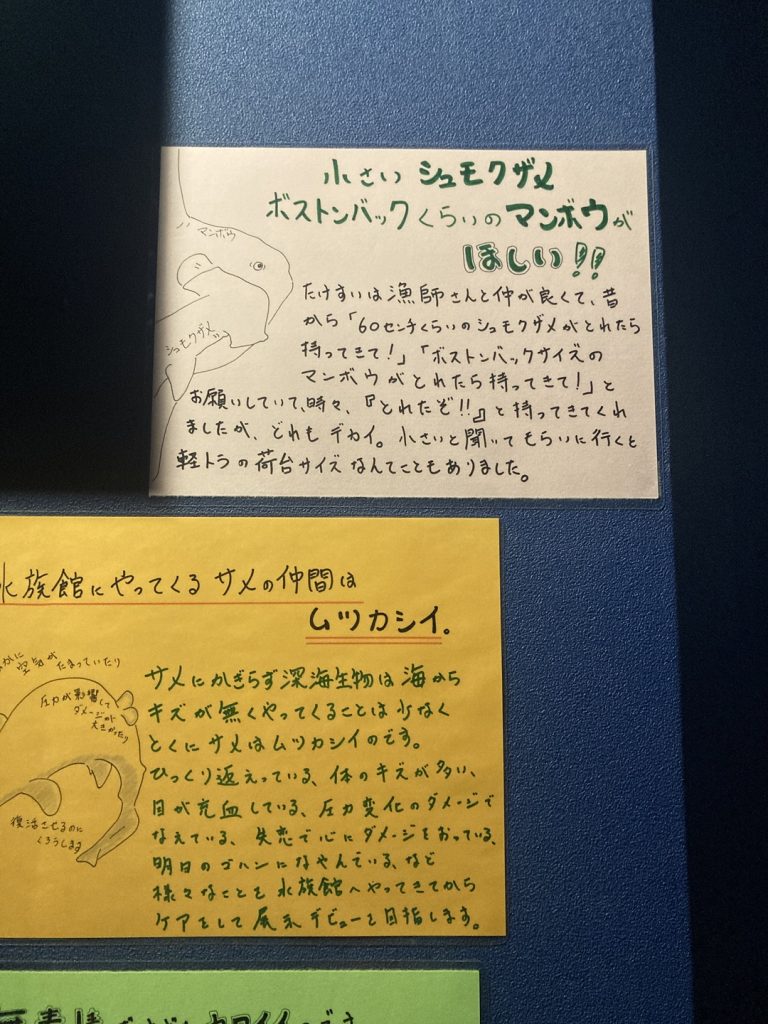 小さい シュモクザメ
ボストンバックくらいのマンボウが
ほしい!!
マンボウ
シュモクザメ
たけすいは漁師さんと仲が良くて、昔
から「60センチくらいのシュモクザメがとれたら
持ってきて!」「ボストンバックサイズの
マンボウがとれたら持ってきて!」と
お願いしていて、時々、『とれたぞ!!』と持ってきてくれ
ましたが、どれもデカイ。小さいと聞いてもらいに行くと
軽トラの荷台サイズなんてこともありました。
水族館にやってくるサメの仲間は
ムツカシイ。
空気がたまっていたり
圧力が影響して
ダメージが
大きかったり
復活させるのに
くろうします
サメにかぎらず深海生物は海から
キズが無くやってくることは少なく
とくにサメはムツカシイのです。
ひっくり返えっている、体のキズが多い、
目が充血している、圧力変化のダメージで
なえている、失恋で心にダメージをおっている、
明日のゴハンになやんでいる、など
様々なことを水族館へやってきてから
ケアをして展示デビューを目指します。